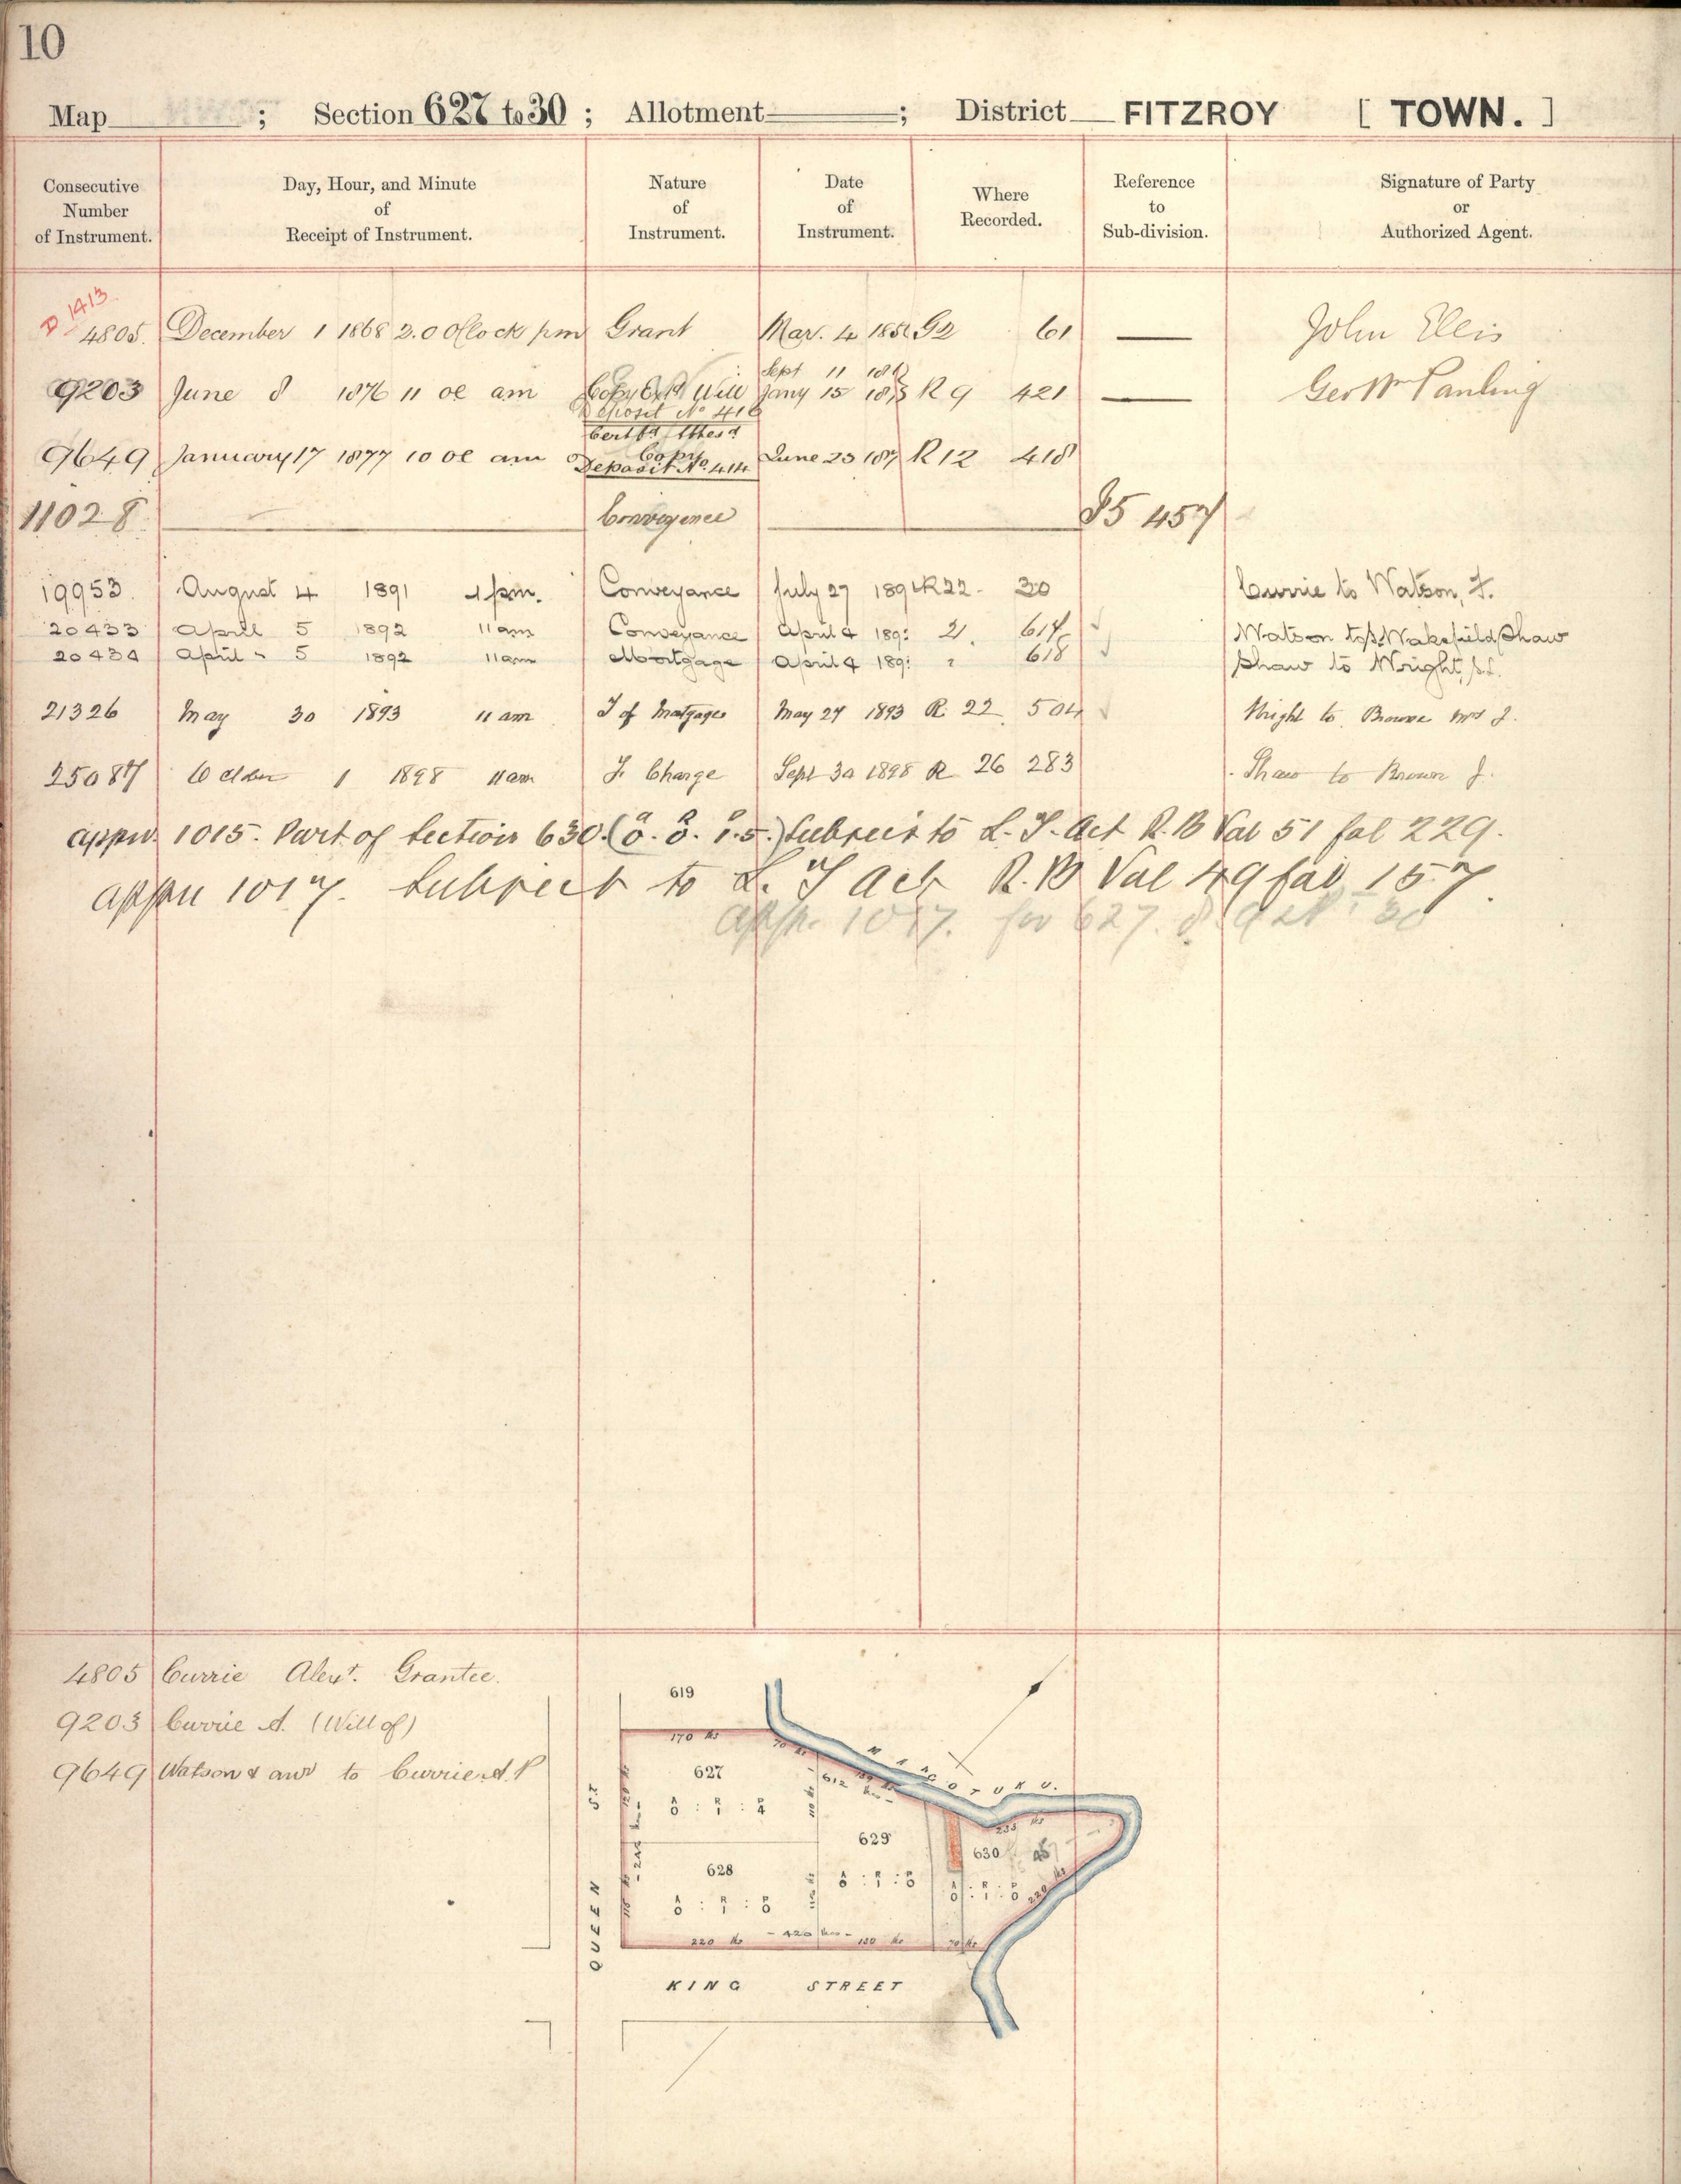 10
Map ; Section 627 to 30 ; Allotment ; District FITZROY [ TOWN. ]
Consecutive Number of Instrument.
Day, Hour, and Minute of Receipt of Instrument.
Nature of Instrument.
Date of Instrument.
Where Recorded.
Reference to Sub-division.
Signature of Party or Authorized Agent.
D 1413
4805. December 1 1868 2.0 OClock pm Grant Mar. 4 G2 61 — John Ellis
Sept 11
9203 June 8 1876 11 oc am Copy Will Jany 15 R 9 421 — Geo Wm Panling
Deposit No 416
Certfd Attesd
9649 January 17 1877 10 oc am Copy June 23 R 12 418
Deposit No. 414
11028 Conveyence 457
19953. August 4 1891 1 pm. Conveyance July 27 189 R 22. 30 Currie to Watson, F.
20433 April 5 1892 11 am Conveyance April 4 189 21. 614 Watson to Wakefield Shaw
20434 April " 5 1892 11 am Mortgage April 4 189 " 618 Shaw to Wright,
21326 May 30 1893 11 am T of Matgage May 27 1893 R. 22 504 Wright to Browne Mrs J.
25087 October 1 1898 11 am F. Charge Sept 30 1898 R 26 283 Shaw to Brown J.
appn. 1015. Part of Section 630. (0. 0. 1.5.) Subject to L. T. Act R. B Vol 51 fol 229.
appn 1017. Subject to L. T Act R. B Vol 49 fol 157.
appn. 1017. for 627. 8. 9 & Pt 30
4805 Currie Alexr. Grantee.
9203 Currie A. (Will of)
9649 Watson & anr to Currie A. P
619
170 lks
70 lks
MANGOTUKU.
627
A R P
0 : 1 : 4
612 lks
629
A R P
0 : 1 : 0
235 lks
630
A R P
0 : 1 : 0
220 lks
628
A R P
0 : 1 : 0
220 lks – 420 lks – 130 lks 70 lks
QUEEN ST
KING STREET